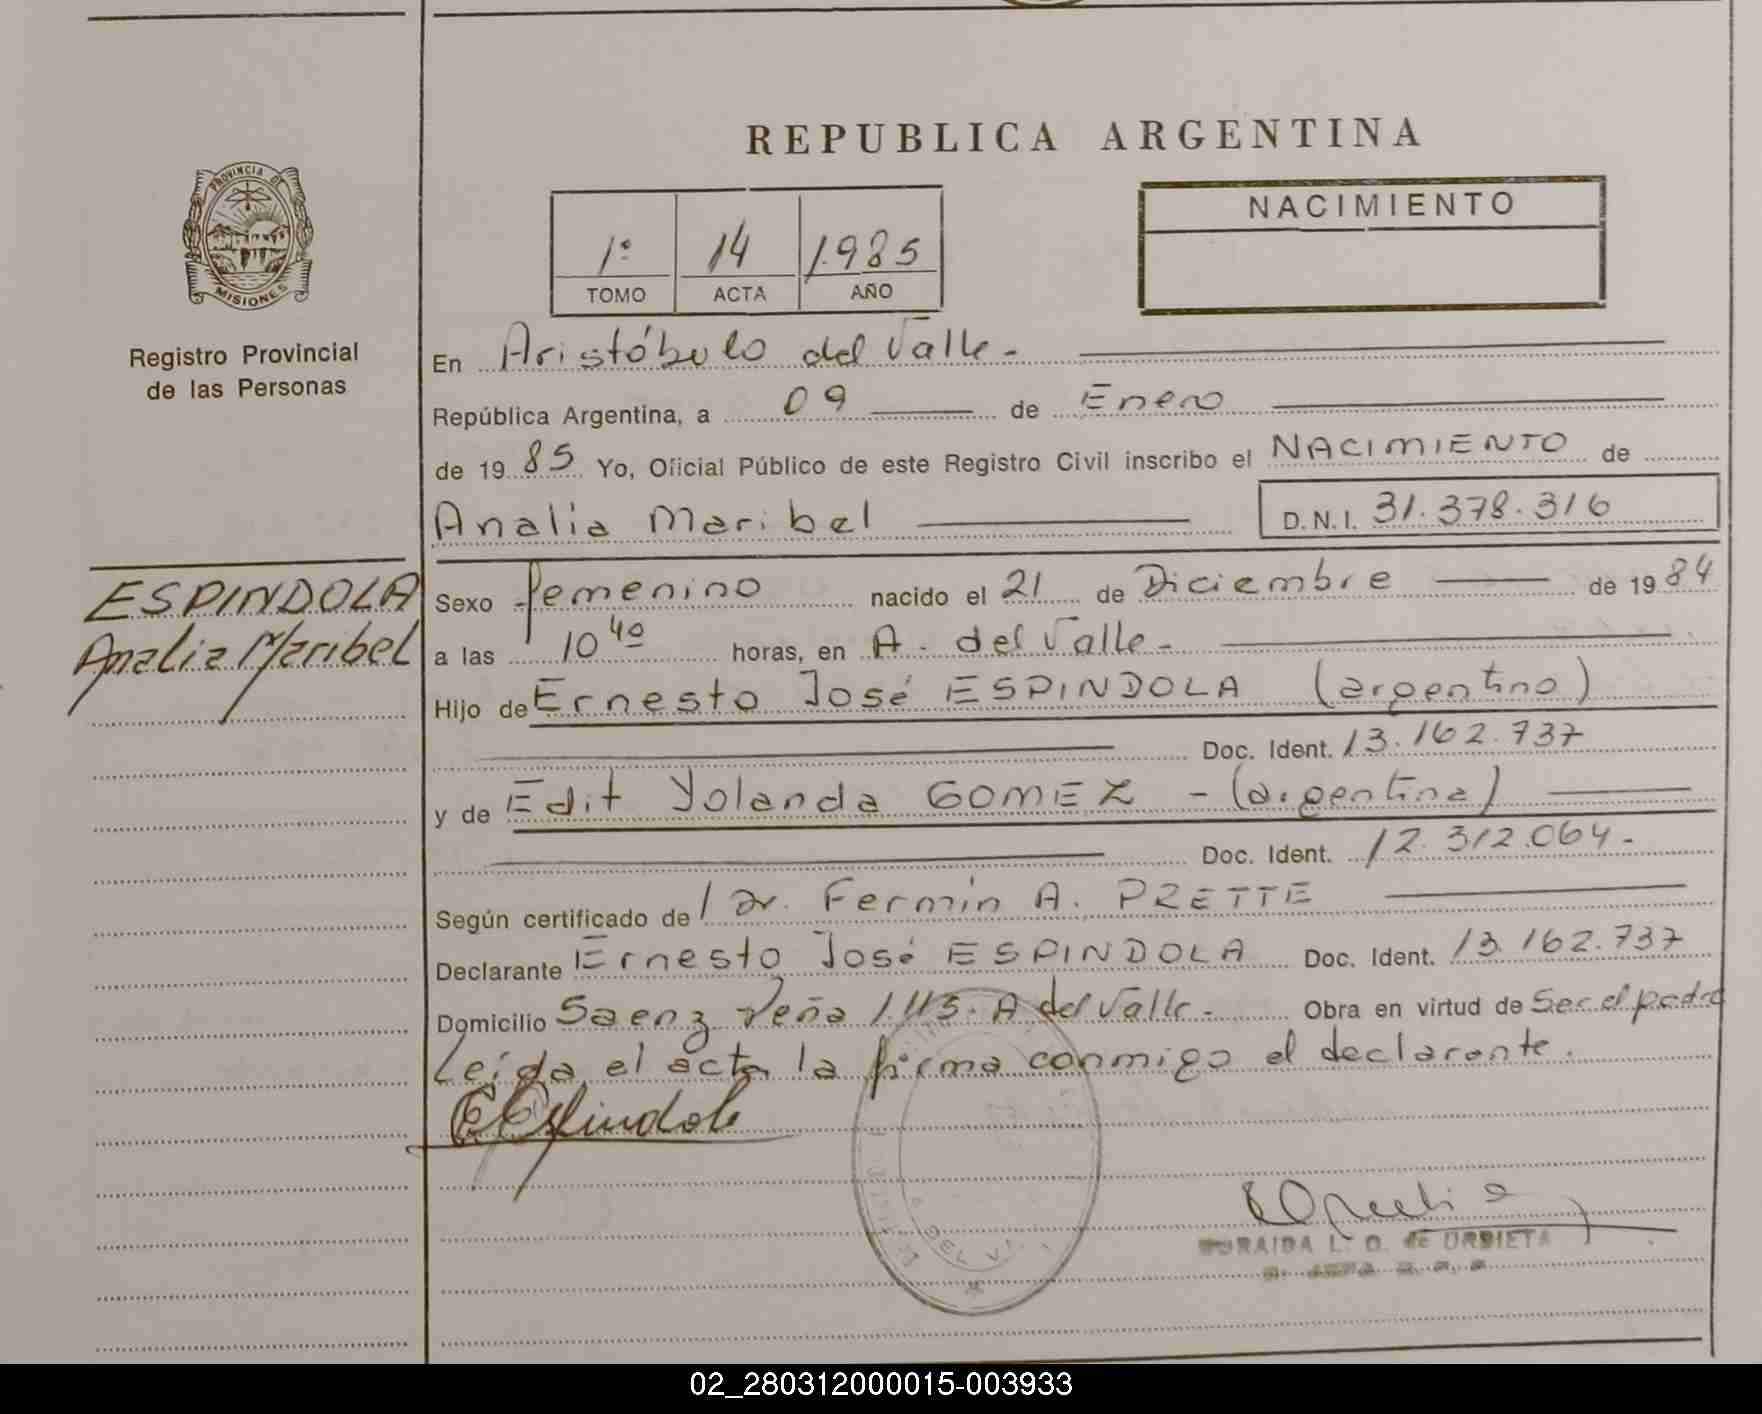 REPUBLICA ARGENTINA
PROVINCIA DE
MISIONES
Registro Provincial
de las Personas
1º 14 1.985
TOMO ACTA AÑO
NACIMIENTO
En Aristóbulo del Valle -
República Argentina, a 09 de Enero
de 19 85 Yo, Oficial Público de este Registro Civil inscribo el NACIMIENTO de
Analia Maribel D.N.I. 31.378.316
ESPINDOLA
Analia Maribel
Sexo femenino nacido el 21 de Diciembre de 19 84
a las 10 40 horas, en A. del Valle -
Hijo de Ernesto José ESPINDOLA (argentino)
Doc. Ident. 13.162.737
y de Edit Yolanda GOMEZ - (argentina)
Doc. Ident. 12.312.064.-
Según certificado de Dr. Fermín A. PRETTE
Declarante Ernesto José ESPINDOLA Doc. Ident. 13.162.737
Domicilio Saenz Peña 1.115. A del Valle. - Obra en virtud de Ser el padre
Leída el acta la firma conmigo el declarante.
EEspindola
DEL V
L. O. de URBIETA
02_280312000015-003933